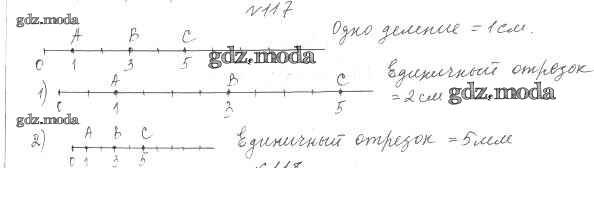 №117
gdz.moda
A B C Одно деление = 1 см.
0 1 3 5 gdz.moda
1) A B C Единичный отрезок
0 1 3 5 = 2 см gdz.moda
gdz.moda
2) A B C Единичный отрезок = 5 мм
0 1 3 5